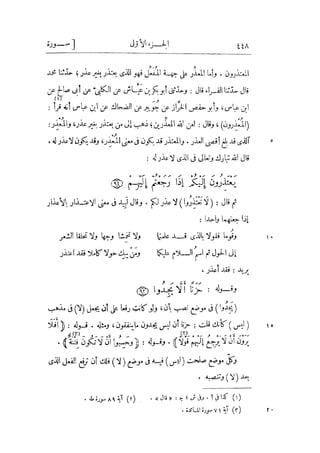 ٤٤٨ الجـــزء الأول [ســورة
المعتذرون . وأما المعذّر على جهــة المُفَعِّل فهو الذى يعتذر بغير عذر؛ حدّثنا محمد
قال حدّثنا الفــراء قال : وحدّثنى أبو بكر بن عيّــاش عن الكلبىّ عن أبى صالح عن
ابن عباس، وأبو حفص الخرّاز عن جُوَيبر عن الضحاك عن ابن عباس أنه قرأ :
(المُعْذِرون) ، وقال : لعن الله المعذِّرين؛ ذهب إلى من يعتذر بغير عذر، والمُعْذِر:
٥ الذى قد بلغ أقصى العذر . والمعتذر قد يكون فى معنى المُعْذِر، وقد يكون لا عذر له .
قال الله تبارك وتعالى فى الذى لا عذر له :
يَعْتَذِرُونَ إِلَيْكُمْ إِذَا رَجَعْتُمْ إِلَيْهِمْ ٩٤
ثم قال : (لَا تَعْتَذِرُوا) لا عذر لكم . وقال لَبِيد فى معنى الاعتــذار بالإعذار
إذا جعلهما واحدا :
١٠ وقُوما فقولا بالذى قــد علمتما ولا تخمِشا وجها ولا تحلقا الشعر
إلى الحول ثم اسمُ الســلام عليكما ومن يبك حولا كاملا فقد اعتذر
يريد : فقد أعذر .
وقــوله : حَزَنًا أَلَّا يَجِدُوا ٩٢
(يجدوا) فى موضع نصب بأن، ولو كانت رفعا على أن يجعل (لا) فى مذهب
١٥ (ليس) كأنك قلت : حزنا أن ليس يجدون ما ينفقون، ومثله . قوله : (أَفَلَا
يَرَوْنَ أَنْ لَا يَرْجِعُ إِلَيْهِمْ قَوْلًا) . وقوله : (وَحَسِبُوا أَنْ لَا تَكُونَ فِتْنَةٌ) .
وكلّ موضع صلحت (ليس) فيــه فى موضع (لا) فلك أن ترفع الفعل الذى
بعد (لا) وتنصبه .
(١) كذا فى أ . وفى ش ، ج : « قال » . (٢) آية ٨٩ سورة طه .
٢٠ (٣) آية ٧١ سورة المــائدة .